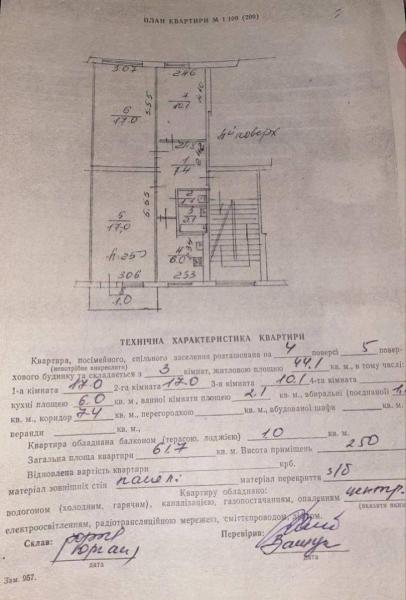 ПЛАН КВАРТИРИ М 1:100 (200)
3.07
2.46
6
17.0
5.55
7
10.1
4 поверх
1
7.4
2
1.1
3
2.1
5
17.0
6.65
4
6.0
h-250
306
253
1.0
ТЕХНІЧНА ХАРАКТЕРИСТИКА КВАРТИРИ
Квартира, посімейного, спільного заселення розташована на 4 поверсі 5 повер-
(непотрібне викреслити)
хового будинку та складається з 3 кімнат, житловою площею 44.1 кв. м, в тому числі:
1-а кімната 17.0 2-га кімната 17.0 3-я кімната 10.1 4-та кімната
кухні площею 6.0 кв. м, ванної кімнати площею 2.1 кв. м, вбиральні (поєднаної)
кв. м, коридор 7.4 кв. м, перегородкою кв. м, вбудованої шафи
веранди кв. м,
Квартира обладнана балконом (терасою, лоджією) 1.0 кв. м.
Загальна площа квартири 61.7 кв. м. Висота приміщень 250
Відновлена вартість квартири крб.
матеріал зовнішніх стін панелі матеріал перекриття з/б
Квартиру обладнано:
водогоном (холодним, гарячим), каналізацією, газопостачанням, опаленням центр.
електроосвітленням, радіотрансляційною мережею, сміттєпроводом,
Склав: Перевірив:
дата дата
Зам. 957.